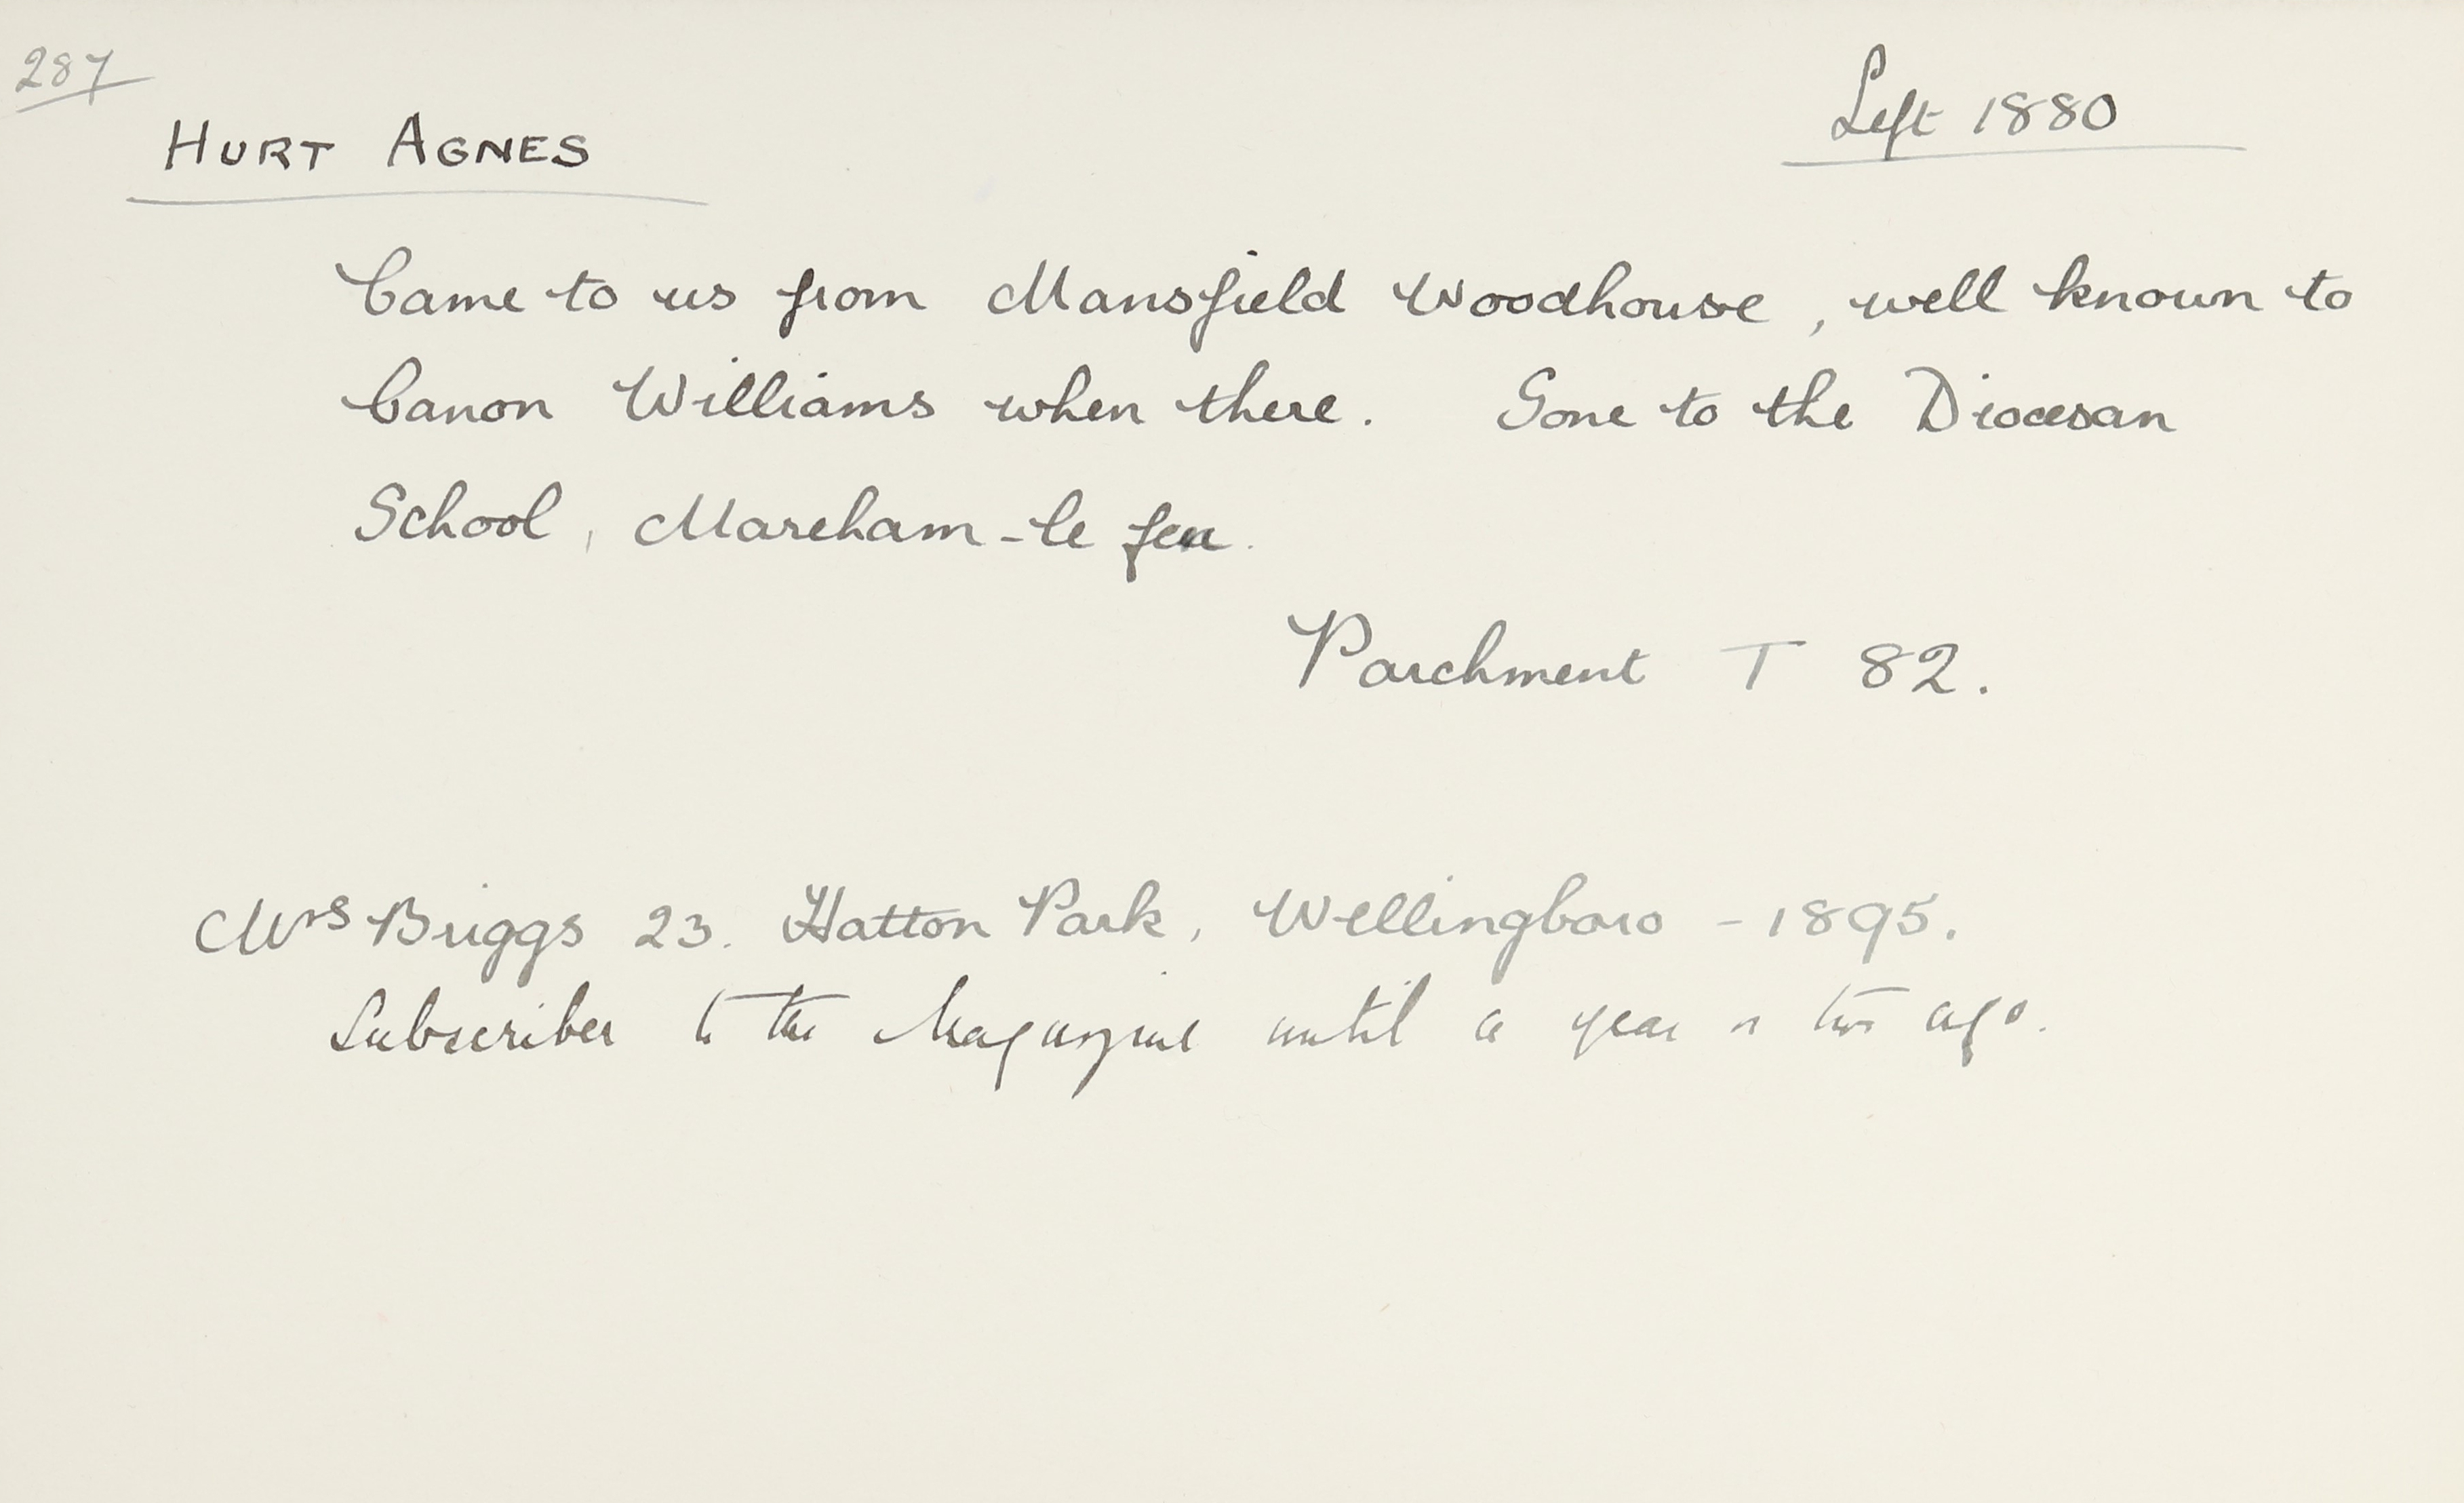 287
HURT AGNES
Left 1880
Came to us from Mansfield Woodhouse, well known to
Canon Williams when there. Gone to the Diocesan
School, Mareham-le fen.
Parchment T 82.
Mrs Briggs 23. Hatton Park, Wellingboro - 1895.
Subscriber to the Magazine until a year or two ago.